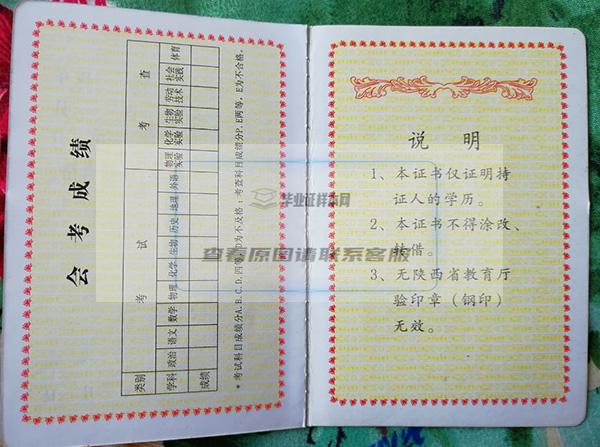 会考成绩
类别 考试 考查
学科 政治 语文 数学 物理 化学 生物 历史 地理 外语 物理实验 化学实验 生物实验 劳动技术 社会实践 体育
成绩
*考试科目成绩分A、B、C、D、四等,D为不合格;考查科目成绩分P、E两等,E为不合格。
毕业证样本网
查看原图请联系客服
说 明
1、本证书仅证明持
证人的学历。
2、本证书不得涂改、
转借。
3、无陕西省教育厅
验印章(钢印)
无效。